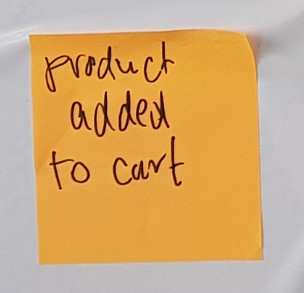 product
added
to cart